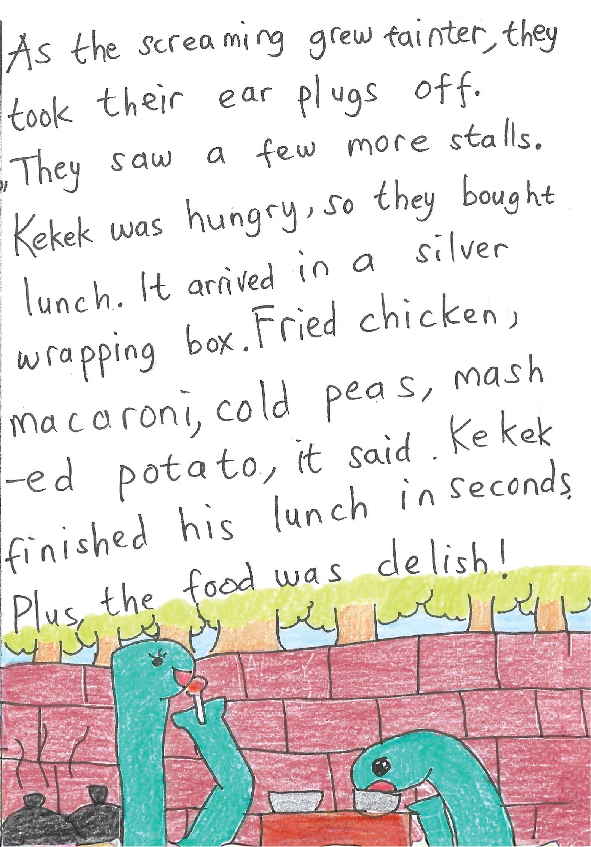 As the screaming grew fainter, they
took their ear plugs off.
They saw a few more stalls.
Kekek was hungry, so they bought
lunch. It arrived in a silver
wrapping box. Fried chicken,
macaroni, cold peas, mash
-ed potato, it said. Kekek
finished his lunch in seconds.
Plus, the food was delish!